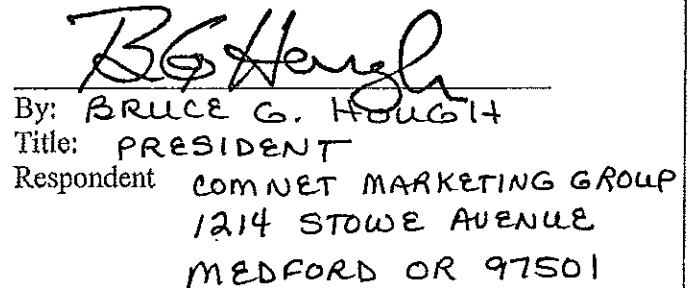 BG Hough
By: BRUCE G. HOUGH
Title: PRESIDENT
Respondent COMNET MARKETING GROUP
1214 STOWE AVENUE
MEDFORD OR 97501